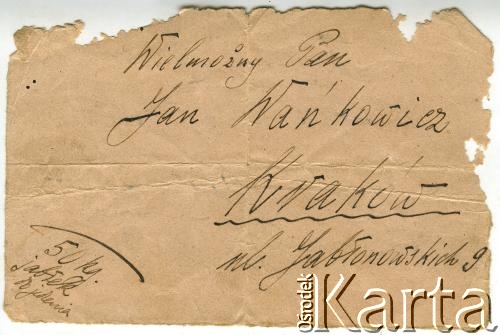 Wielmożny Pan
Jan Wańkowicz
Kraków
ul. Jabłonowskich 9
50 kg.
jabłek
Ośrodek
Karta